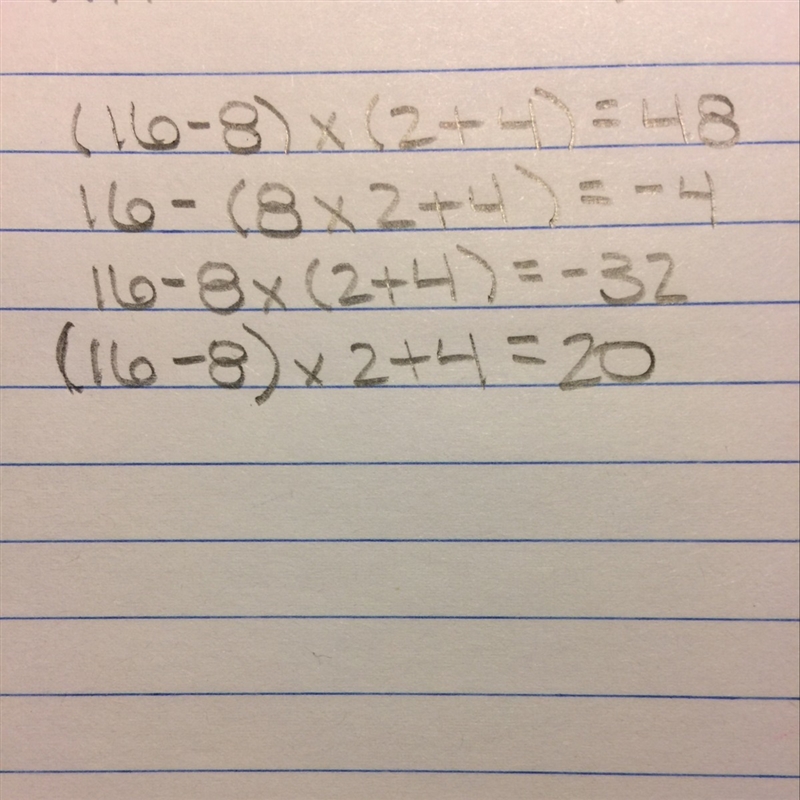 (16-8) x (2+4) = 48
16 - (8 x 2+4) = -4
16-8 x (2+4) = -32
(16-8) x 2+4 = 20